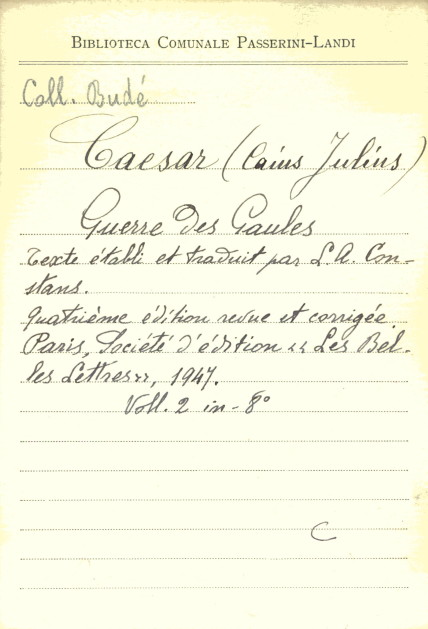 BIBLIOTECA COMUNALE PASSERINI-LANDI
Coll. Budé
Caesar (Caius Julius)
Guerre des Gaules
Texte établi et traduit par L. A. Con-
stans.
Quatrième édition revue et corrigée
Paris, Société d'édition «Les Bel-
les Lettres», 1947.
Voll. 2 in-8°
C